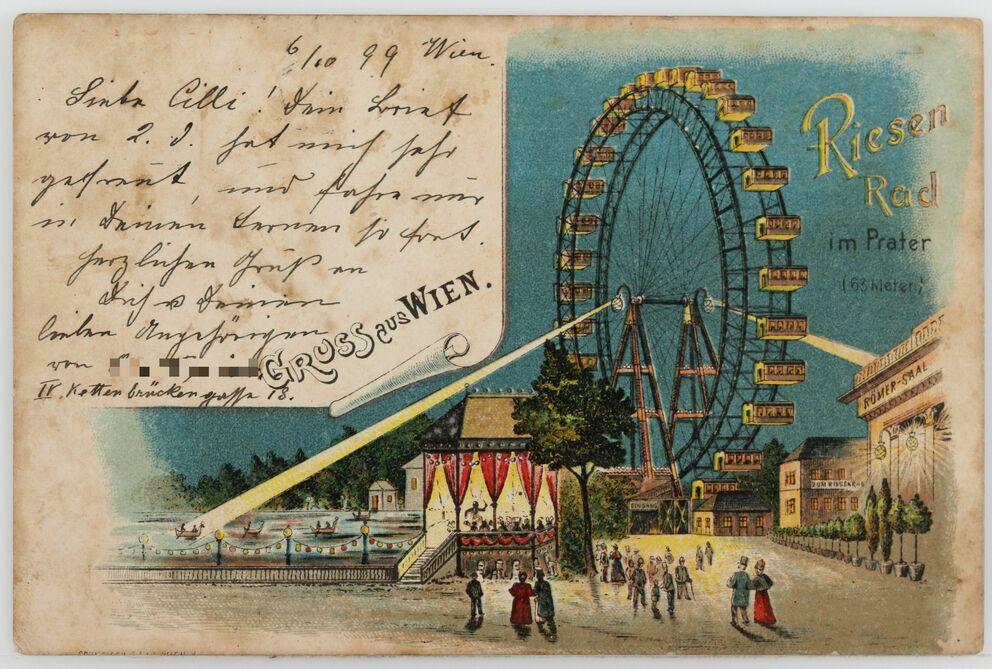 6/10 99 Wien.
Liebe Cilli! Dein Brief
von 2. d. hat mich sehr
gefreut, und fahre nur
in Deinem Lernen so fort.
Herzlichen Gruß an
Dich u Deinen
lieben Angehörigen
von
IV. Kettenbrückengasse 18.
GRUSS aus WIEN.
Riesen
Rad
im Prater
(63 Meter)
RÖMER-SAAL
ZUM RIESENRAD
EINGANG